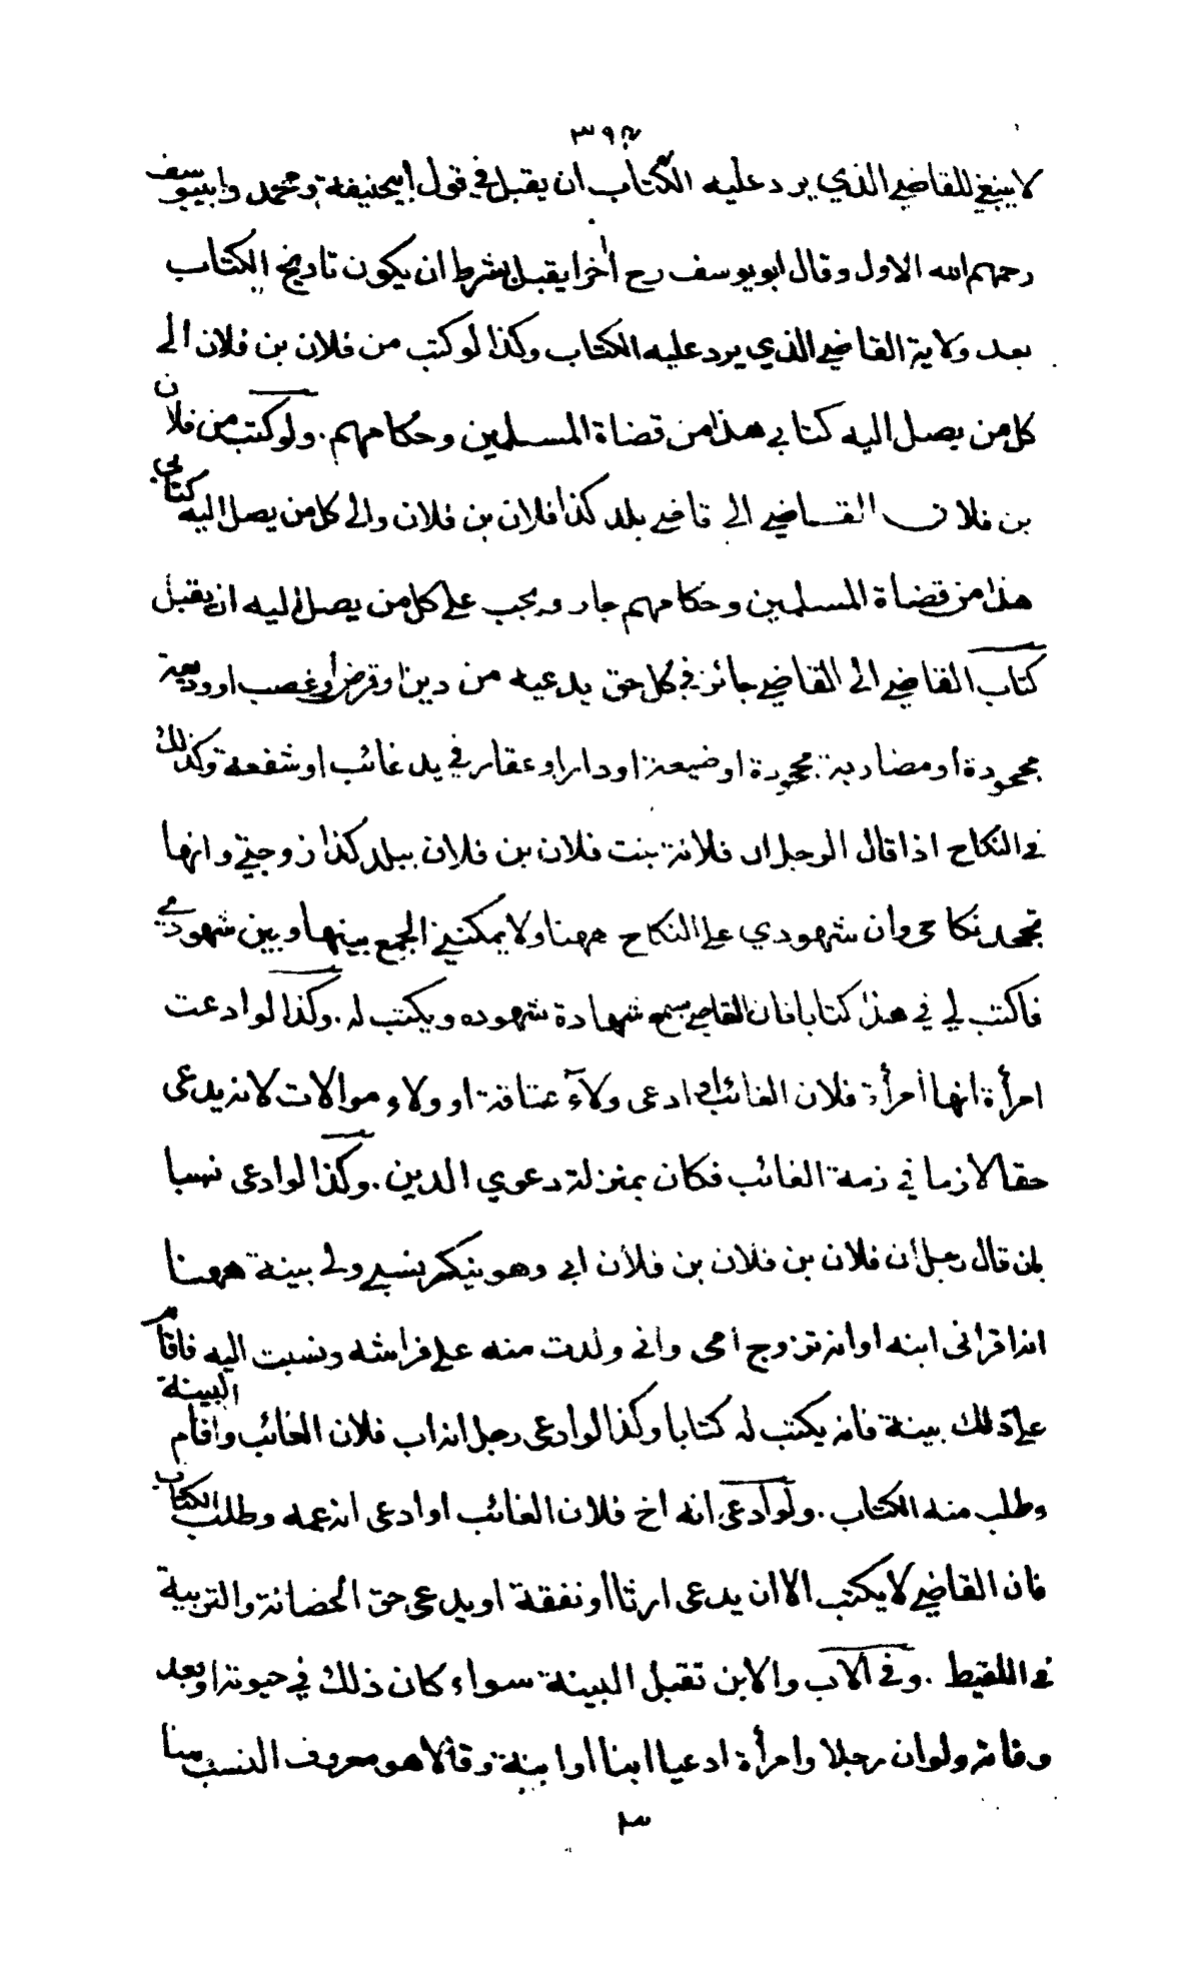 ٣٩٢
لا ينبغي للقاضي الذي يرد عليه الكتاب ان يقبل في قول ابيحنيفة ومحمد وابييوسف
رحمهم الله الاول وقال ابو يوسف رح اخرا يقبل بشرط ان يكون تاريخ الكتاب
بعد ولاية القاضي الذي يرد عليه الكتاب وكذا لو كتب من فلان بن فلان الى
كل من يصل اليه كتابي هذا من قضاة المسلمين وحكامهم . ولو كتب من فلان
بن فلان القاضي الى قاضي بلد كذا فلان بن فلان والى كل من يصل اليه كتابي
هذا من قضاة المسلمين وحكامهم جاز ويجب على كل من يصل اليه ان يقبل
كتاب القاضي الى القاضي جائز في كل حق يدعيه من دين او قرض او غصب او وديعة
مجحودة او مضاربة مجحودة او ضيعة او دار او عقار في يد غائب او شفعة وكذلك
في النكاح اذا قال الرجل ان فلانة بنت فلان بن فلان ببلد كذا زوجتي وانها
تجحد نكاحي وان شهودي على النكاح ههنا ولا يمكنني الجمع بينها وبين شهودي
فاكتب لي في هذا كتابا فان القاضي يسمع شهادة شهوده ويكتب له . وكذا لو ادعت
امرأة انها امرأة فلان الغائب او ادعى ولاء عتاقة او ولاء موالات لانه يدعى
حقا لازما في ذمة الغائب فكان بمنزلة دعوي الدين . وكذا لو ادعى نسبا
بان قال رجل ان فلان بن فلان بن فلان ابي وهو ينكر نسبي ولي بينة ههنا
انه اقر انى ابنه او انه تزوج امى وانى ولدت منه على فراشه ونسبت اليه فاقام
على ذلك بينة فانه يكتب له كتابا وكذا لو ادعى رجل انه اب فلان الغائب واقام البينة
وطلب منه الكتاب . ولو ادعى انه اخ فلان الغائب او ادعى انه عمه وطلب الكتاب
فان القاضي لا يكتب الا ان يدعى ارثا او نفقة او يدعى حق الحضانة والتربية
في اللقيط . وفي الاب والابن تقبل البينة سواء كان ذلك في حيوته او بعد
وفاته ولو ان رجلا وامرأة ادعيا ابنا او ابنة وقالا هو معروف النسب منا